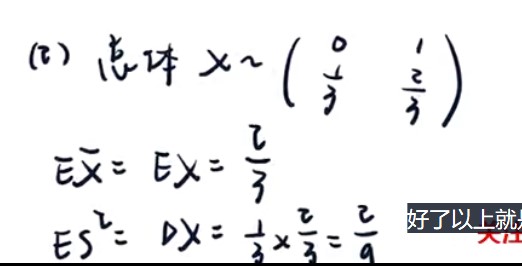 (2) 总体 X ~ ( 0 1
1/3 2/3 )
EX̄ = EX = 2/3
ES² = DX = 1/3 × 2/3 = 2/9
好了以上就是
关注